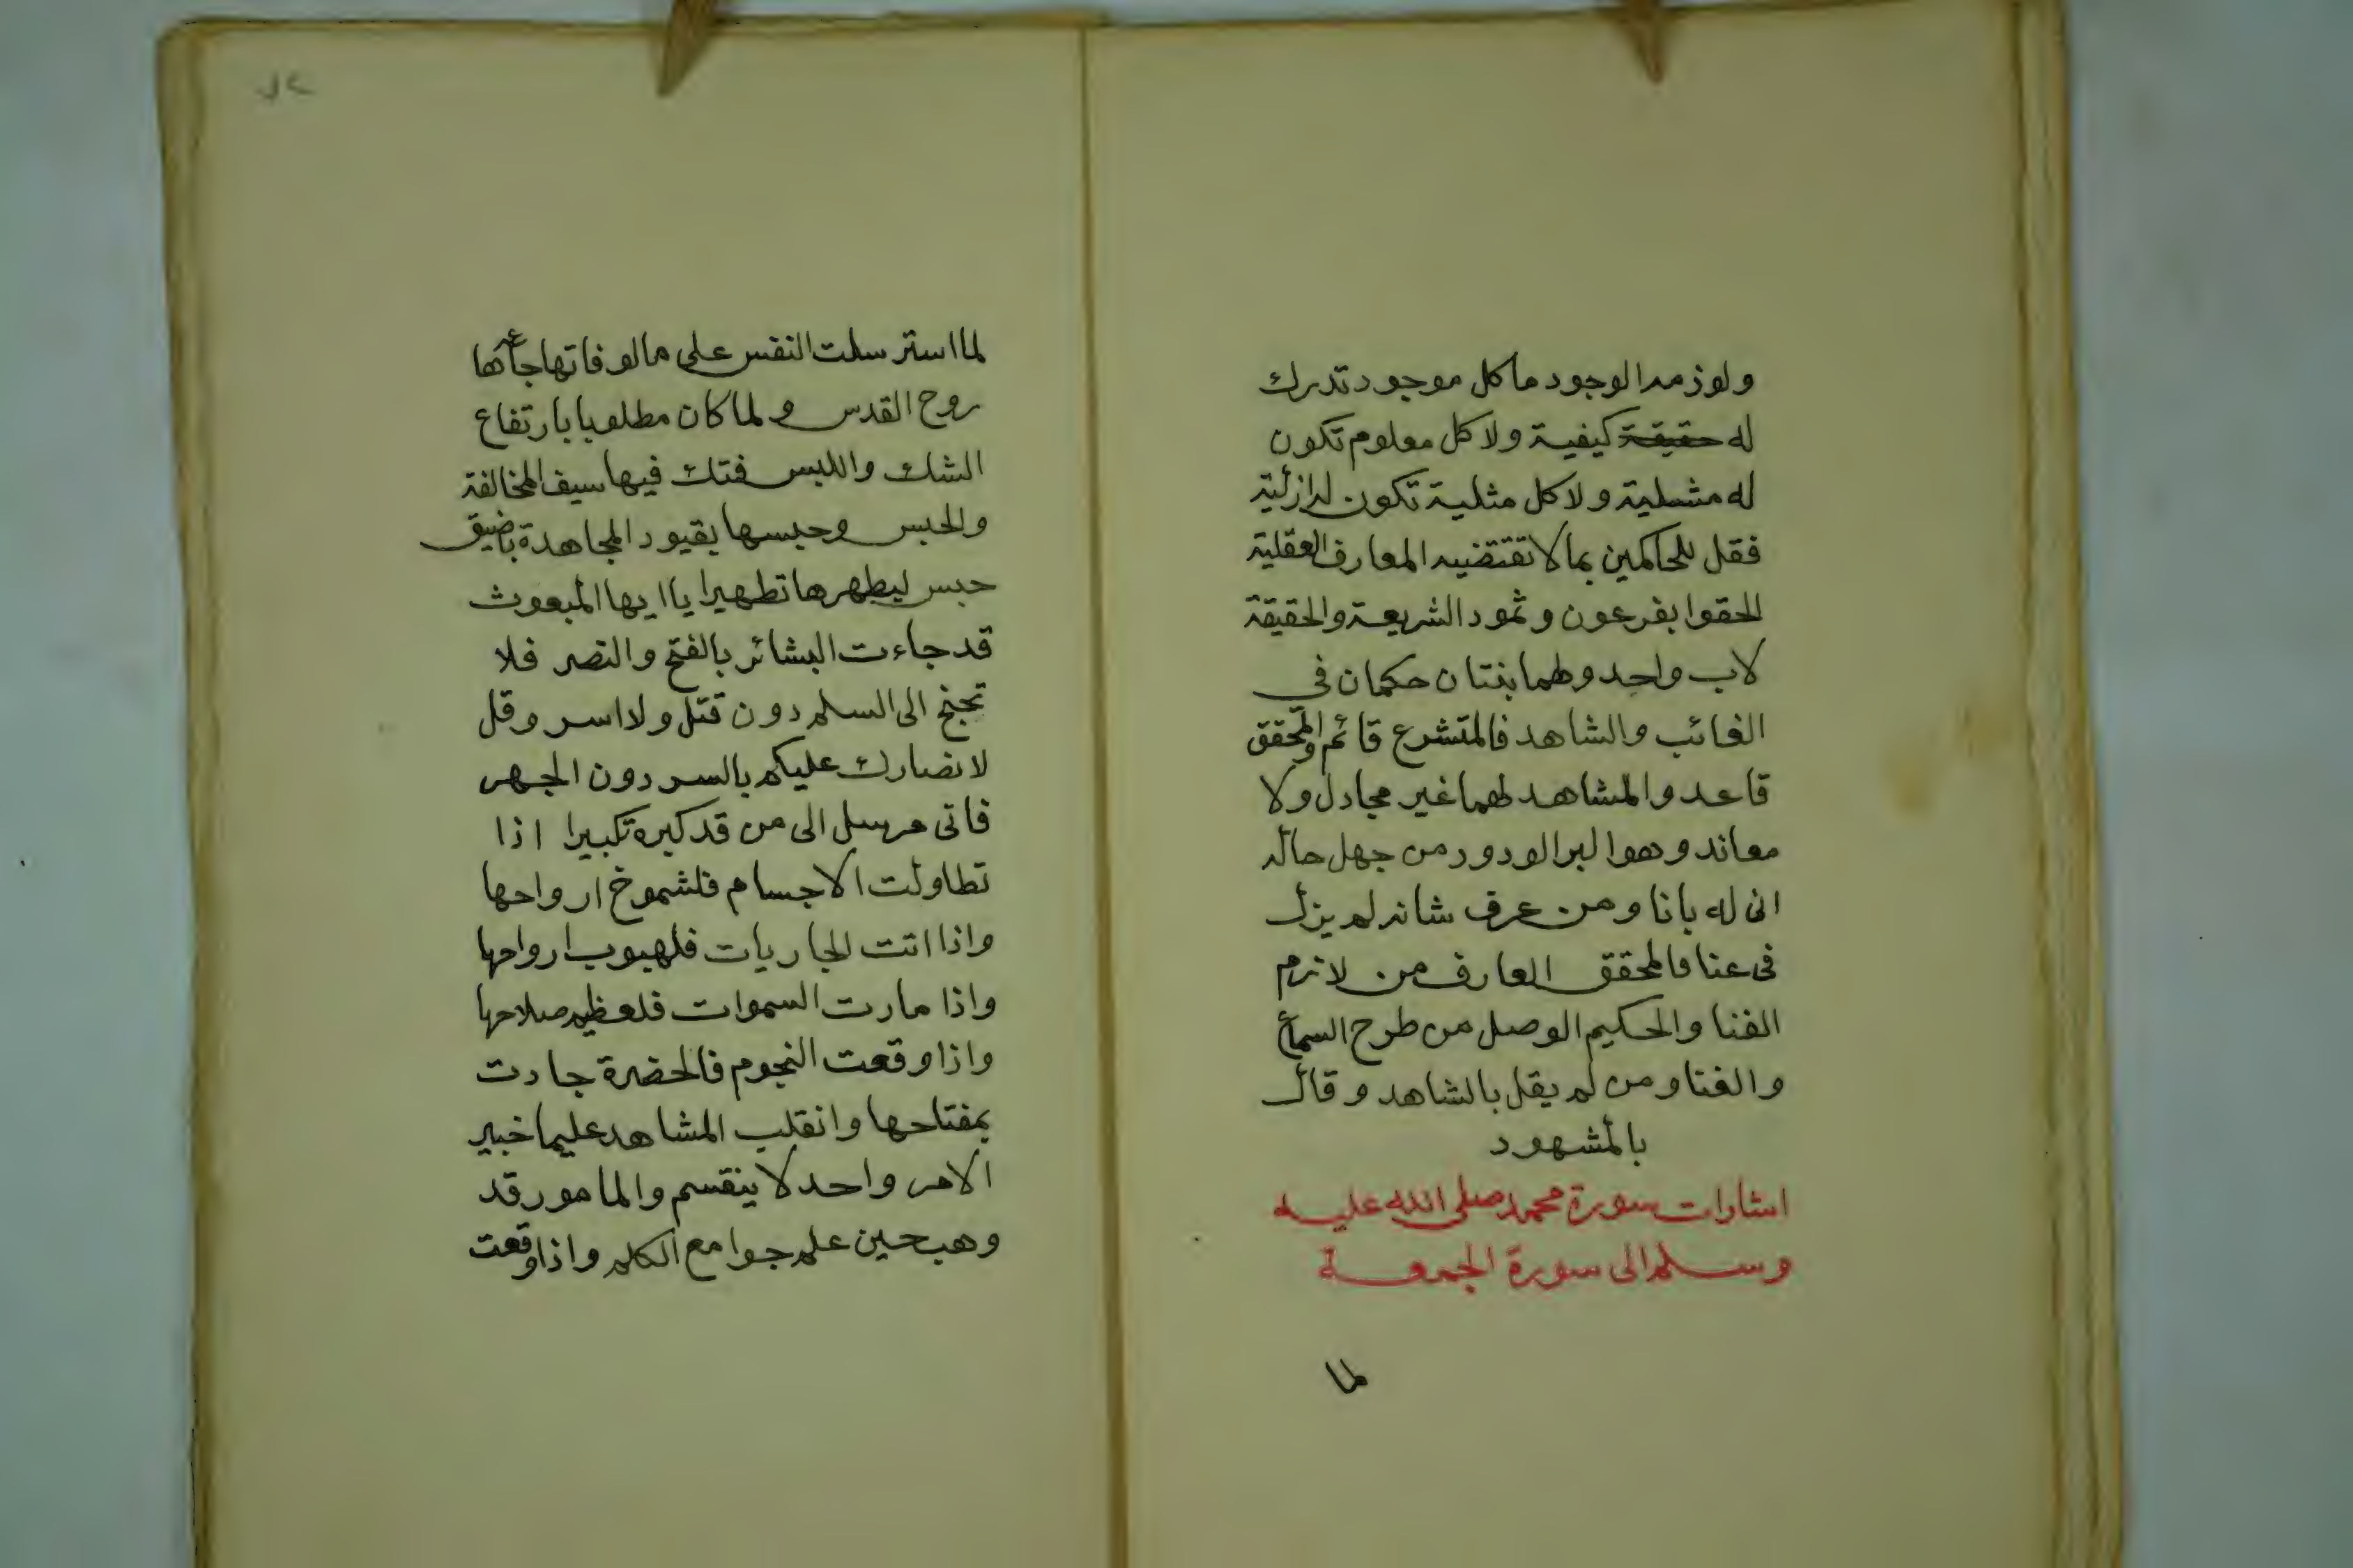 ولوزمه الوجود ما كل موجود تدرك
له حقيقة كيفية ولا كل معلوم تكون
له مشلية ولا كل مثلية تكون له ازلية
فقل للحاكمين بما لا تقتضيه المعارف العقلية
الحقوا بفرعون وثمود الشريعة والحقيقة
لاب واحد وطما بنتان حكمان في
الغائب والشاهد فالمتشرع قائم والمحقق
قاعد والمشاهد لهما غير مجادل ولا
معاند وهو البر الودود من جهل حاله
انى له بانا ومن عرف شانه لم يزل
فى عنا فالمحقق العارف من لازم
الفنا والحكيم الوصل من طرح السماع
والغنا ومن لم يقل بالشاهد وقال
بالمشهود
اشارات سورة محمد صلى الله عليه
وسلم الى سورة الجمعة
لما
٧٢
لما استرسلت النفس على مالوفاتها جاءها
روح القدس ولما كان مطلوبا بارتفاع
الشك واللبس فتك فيها سيف المخالفة
والحبس وحبسها بقيود المجاهدة باضيق
حبس ليطهرها تطهيرا يا ايها المبعوث
قد جاءت البشائر بالفتح والنصر فلا
تجنح الى السلم دون قتل ولا اسر وقل
لانصارك عليكم بالسر دون الجهر
فانى مرسل الى من قد كبره تكبيرا اذا
تطاولت الاجسام فلشموخ ارواحها
واذا اتت الجاريات فلهبوب ارواحها
واذا مارت السموات فلعظيم صلاحها
واذا وقعت النجوم فالحضرة جادت
بمفتاحها وانقلب المشاهد عليما خبير
الامر واحد لا ينقسم والمامور قد
وهب حين علم جوامع الكلم واذا وقعت